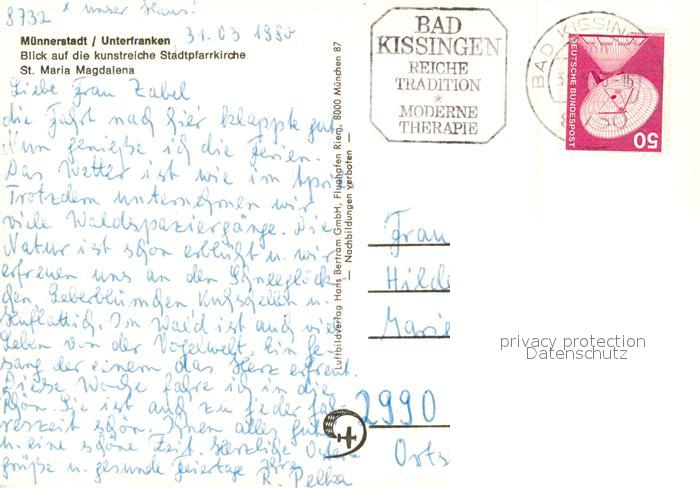 8732 * unser Haus!
31.03 1980
Münnerstadt / Unterfranken
Blick auf die kunstreiche Stadtpfarrkirche
St. Maria Magdalena
Liebe Frau Zabel
die Fahrt nach hier klappte gut.
Nun genieße ich die Ferien.
Das Wetter ist wie im April
Trotzdem unternehmen wir
viele Waldspaziergänge. Die
Natur ist schon erblüht u. wir
erfreuen uns an den Schneeglöck-
chen, Leberblümchen Kuhschellen u.
Huflattich. Im Wald ist auch viel
Leben von der Vogelwelt. Ein Ge-
sang der einem das Herz erfreut.
Diese Woche fahre ich in die
Rhön. Sie ist auch zu jeder Jah-
reszeit schön. Ihnen alles gute
u. eine schöne Zeit. Herzliche Oster-
grüße u. gesunde Feiertage Ihre
R. Pelka
Luftbildverlag Hans Bertram GmbH, Flughafen Riem, 8000 München 87
— Nachbildungen verboten —
BAD
KISSINGEN
REICHE
TRADITION
*
MODERNE
THERAPIE
BAD KISSING
DEUTSCHE BUNDESPOST
50
Frau
Hilde
Marie
2990
Orts
privacy protection
Datenschutz